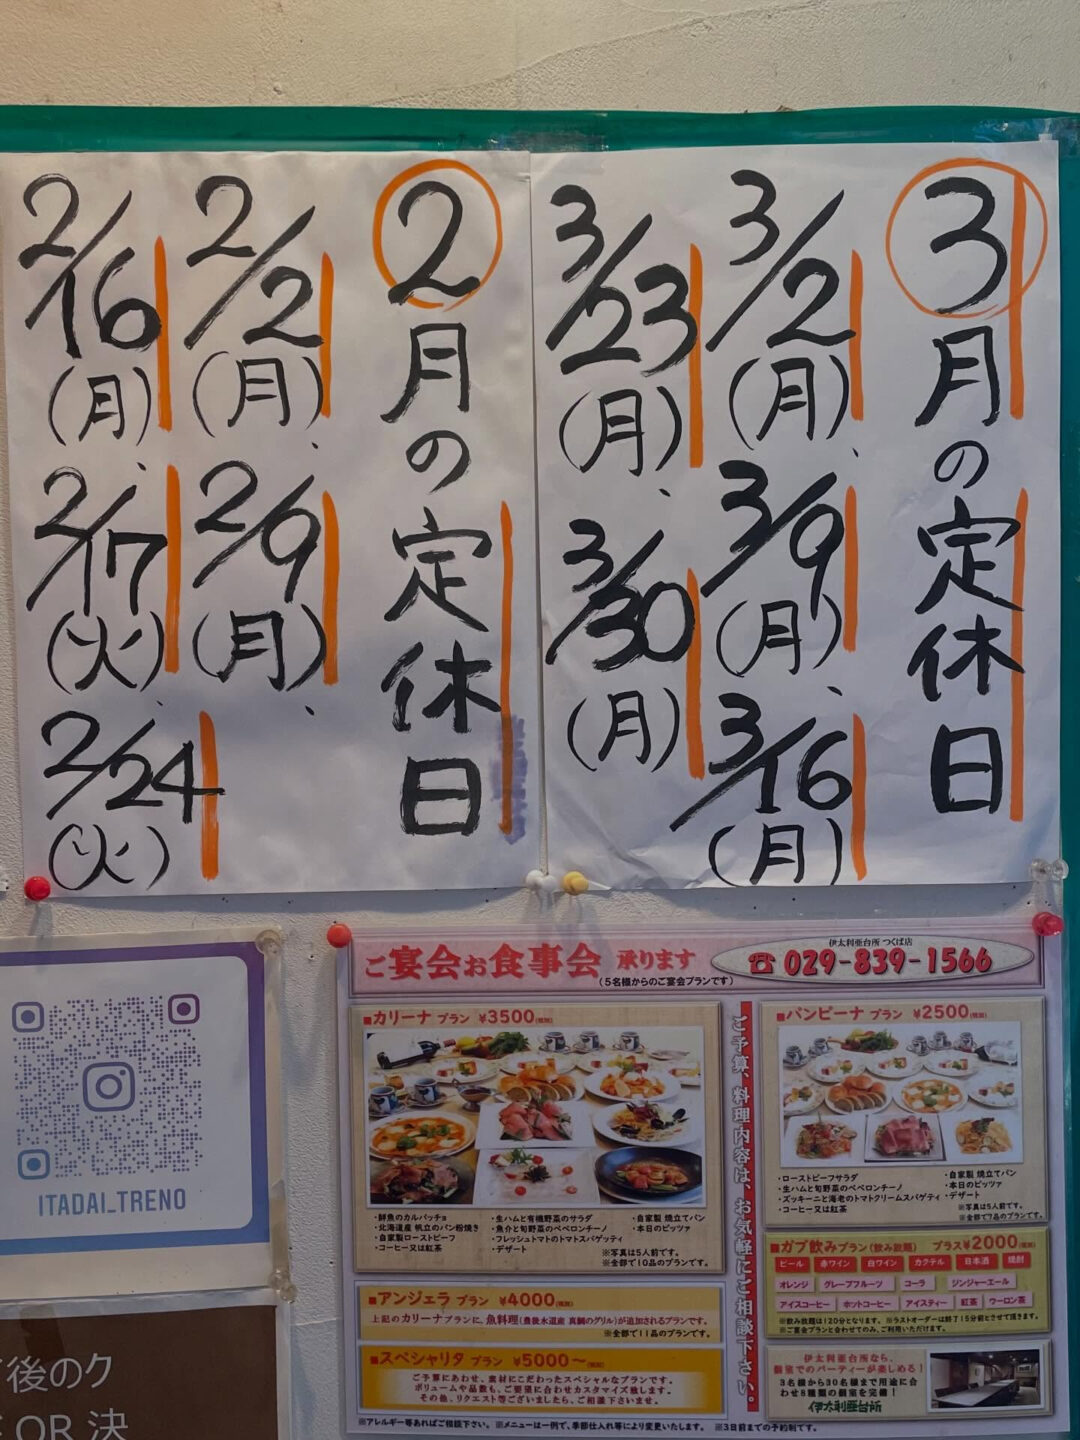 3月の定休日
3/2(月)、3/9(月)、3/16(月)
3/23(月)、3/30(月)
2月の定休日
2/2(月)、2/9(月)、
2/16(月)、2/17(火)、2/24(火)
ITADAI_TRENO
後のク
OR 決
ご宴会お食事会 承ります
(5名様からのご宴会プランです)
伊太利亜台所 つくば店
☎029-839-1566
■カリーナ プラン ¥3500(税別)
・鮮魚のカルパッチョ
・北海道産 帆立のパン粉焼き
・自家製ローストビーフ
・コーヒー又は紅茶
・生ハムと有機野菜のサラダ
・魚介と旬野菜のペペロンチーノ
・フレッシュトマトのトマトスパゲッティ
・デザート
・自家製 焼立てパン
・本日のピッツァ
※写真は5人前です。
※全部で10品のプランです。
■アンジェラ プラン ¥4000(税別)
上記のカリーナプランに、魚料理(豊後水道産 真鯛のグリル)が追加されるプランです。
※全部で11品のプランです。
■スペシャリタ プラン ¥5000〜(税別)
ご予算にあわせ、素材にこだわったスペシャルなプランです。
ボリュームや品数も、ご要望に合わせカスタマイズ致します。
その他、リクエスト等ございましたら、ご相談下さいませ。
ご予算、料理内容は、お気軽にご相談下さい。
■バンビーナ プラン ¥2500(税別)
・ローストビーフサラダ
・生ハムと旬野菜のペペロンチーノ
・ズッキーニと海老のトマトクリームスパゲティ
・コーヒー又は紅茶
・自家製 焼立てパン
・本日のピッツァ
・デザート
※写真は5人前です。
※全部で7品のプランです。
■ガブ飲みプラン(飲み放題) プラス¥2000(税別)
ビール 赤ワイン 白ワイン カクテル 日本酒 焼酎
オレンジ グレープフルーツ コーラ ジンジャーエール
アイスコーヒー ホットコーヒー アイスティー 紅茶 ウーロン茶
※飲み放題は120分となります。※ラストオーダーは終了15分前とさせて頂きます。
※ご宴会プランと合わせてのみ、ご利用いただけます。
伊太利亜台所なら、
個室でのパーティーが楽しめる!
3名様から30名様まで用途に合
わせ8種類の個室を完備!
伊太利亜台所
※アレルギー等あればご相談下さい。※メニューは一例で、季節仕入れ等により変更いたします。 ※3日前までの予約制です。